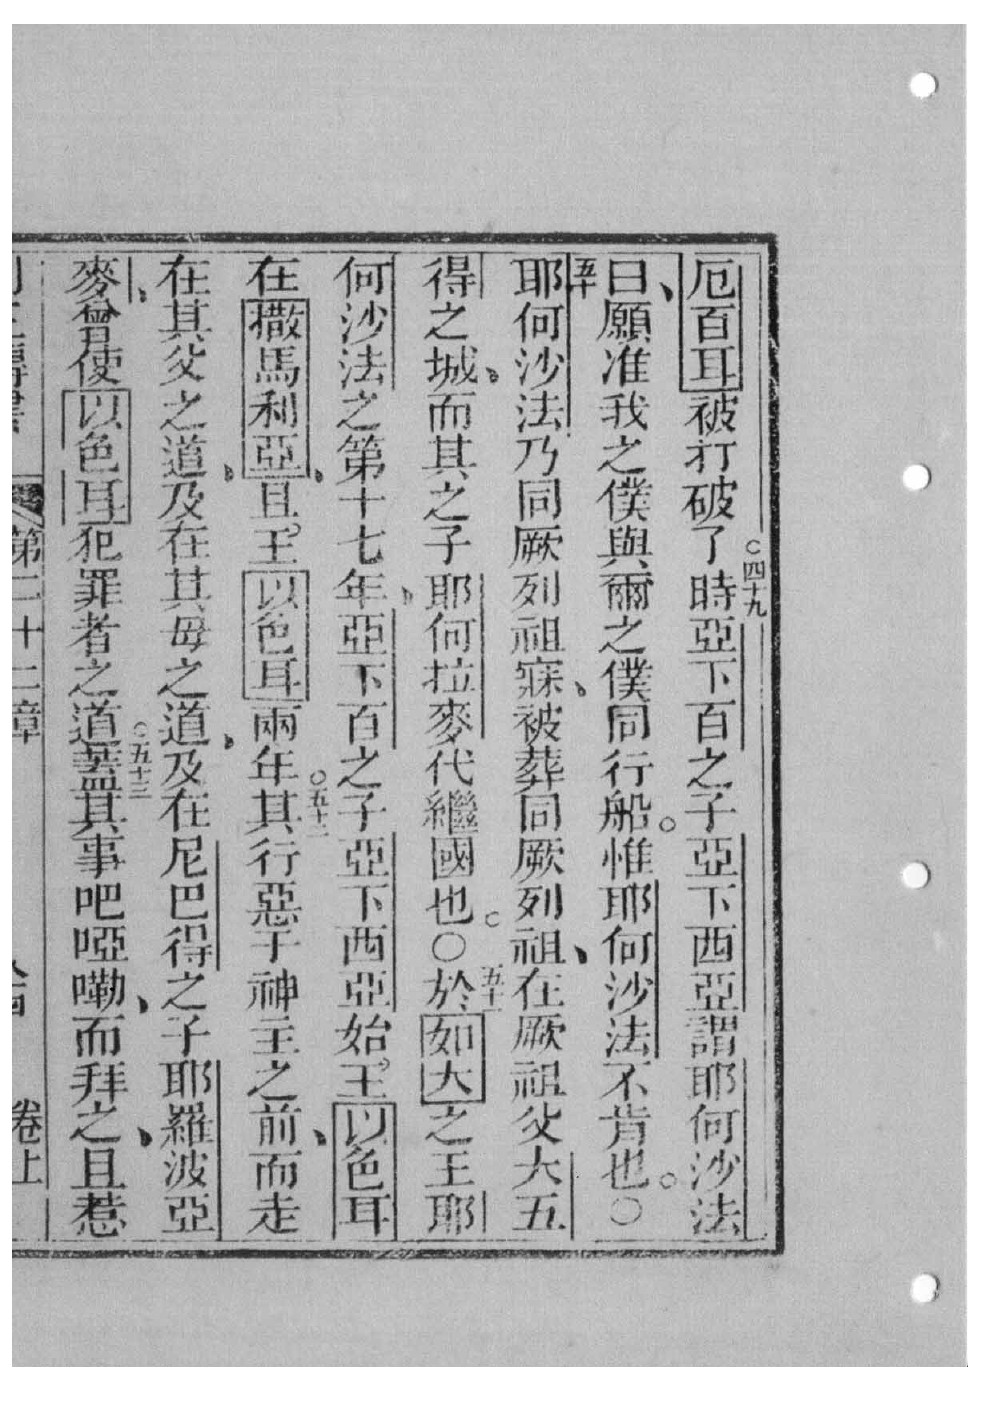 厄百耳被打破了時○四十九亞下百之子亞下西亞謂耶何沙法
曰、願准我之僕與爾之僕同行船。惟耶何沙法不肯也。○
五十耶何沙法乃同厥列祖寐、被葬同厥列祖、在厥祖父大五
得之城、而其之子耶何拉麥代繼國也。○五十一於如大之王耶
何沙法之第十七年、亞下百之子亞下西亞始王以色耳
在撒馬利亞、且王以色耳兩年○五十二其行惡于神主之前、而走
在其父之道、及在其母之道、及在尼巴得之子耶羅波亞
麥、曾使以色耳犯罪者之道○五十三蓋其事吧啞嘞、而拜之、且惹
列王傳書 第二十二章 卷上